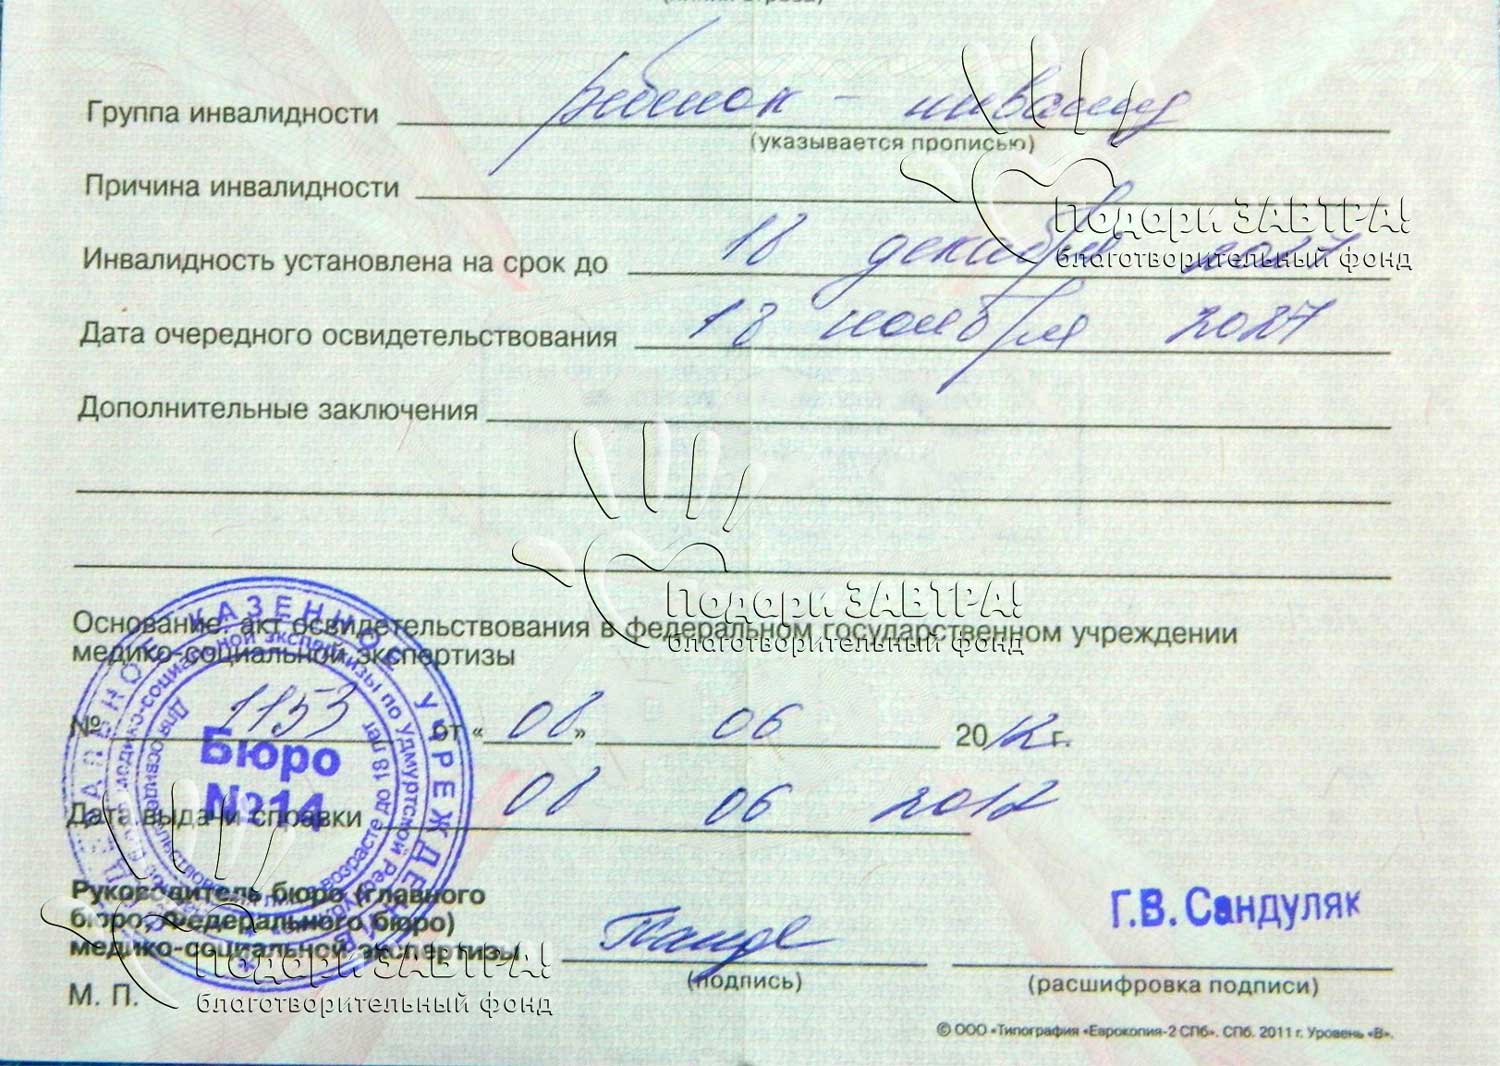 Группа инвалидности ребенок - инвалид
(указывается прописью)
Причина инвалидности
Подари ЗАВТРА!
Инвалидность установлена на срок до 18 декабря 2027
благотворительный фонд
Дата очередного освидетельствования 18 ноября 2027
Дополнительные заключения
Подари ЗАВТРА!
Основание: акт освидетельствования в федеральном государственном учреждении
благотворительный фонд
медико-социальной экспертизы
№ 1153 от «08» 06 2012 г.
Бюро
№14
Дата выдачи справки 08 06 2012
Руководитель бюро (главного
бюро, Федерального бюро)
медико-социальной экспертизы
Г.В. Сандуляк
(подпись) (расшифровка подписи)
Подари ЗАВТРА!
М. П.
благотворительный фонд
© ООО «Типография «Еврокопия-2 СПб». СПб. 2011 г. Уровень «В».